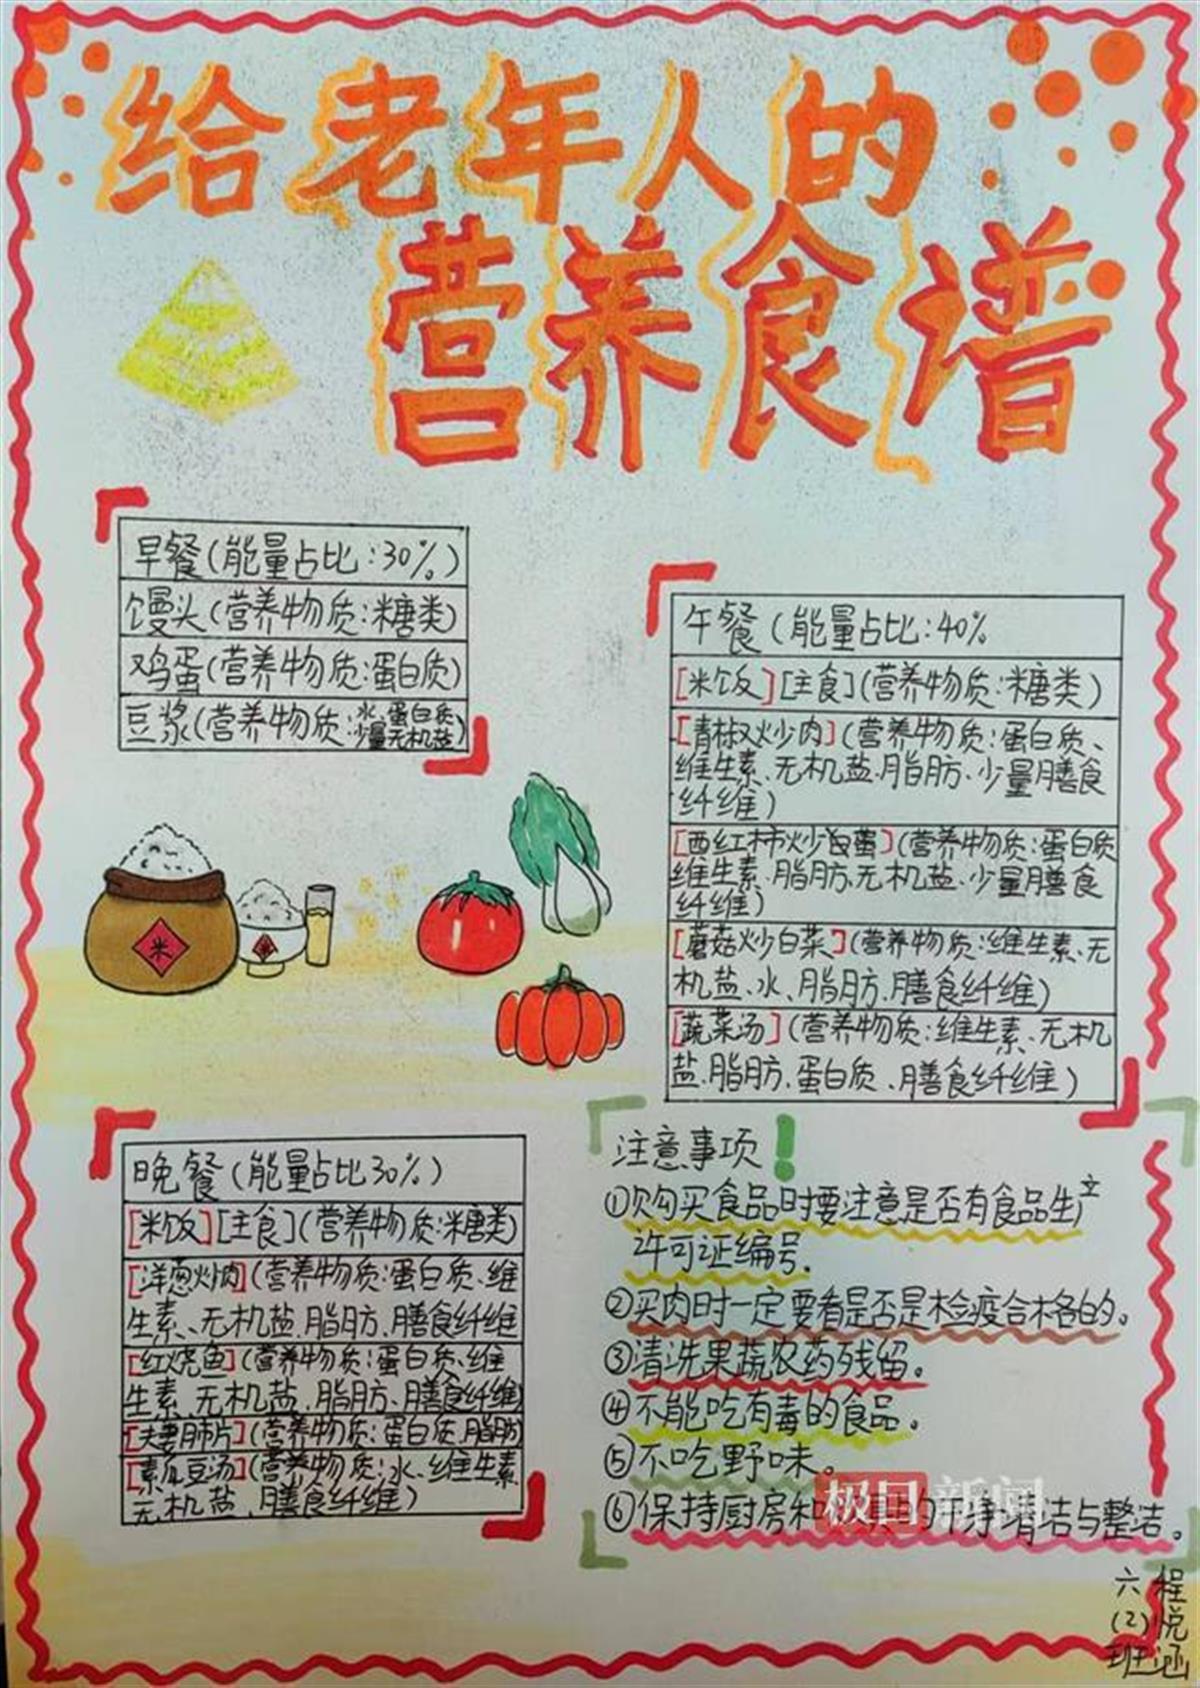 给老年人的
营养食谱
早餐(能量占比:30%)
馒头(营养物质:糖类)
鸡蛋(营养物质:蛋白质)
豆浆(营养物质:水、蛋白质
少量无机盐)
午餐(能量占比:40%
[米饭][主食](营养物质:糖类)
[青椒炒肉](营养物质:蛋白质、
维生素、无机盐、脂肪、少量膳食
纤维)
[西红柿炒鸡蛋](营养物质:蛋白质
维生素、脂肪、无机盐、少量膳食
纤维)
[蘑菇炒白菜](营养物质:维生素、无
机盐、水、脂肪、膳食纤维)
[蔬菜汤](营养物质:维生素、无机
盐、脂肪、蛋白质、膳食纤维)
米
晚餐(能量占比30%)
[米饭][主食](营养物质:糖类)
[洋葱炒肉](营养物质:蛋白质、维
生素、无机盐、脂肪、膳食纤维
[红烧鱼](营养物质:蛋白质、维
生素、无机盐、脂肪、膳食纤维)
[夫妻肺片](营养物质:蛋白质、脂肪)
[素瓜豆汤](营养物质:水、维生素
无机盐、膳食纤维)
注意事项!
①购买食品时要注意是否有食品生产
许可证编号。
②买肉时一定要看是否是检疫合格的。
③清洗果蔬农药残留。
④不能吃有毒的食品。
⑤不吃野味。
⑥保持厨房和 具的干净清洁与整洁。
极目新闻
六(2)班
程悦涵